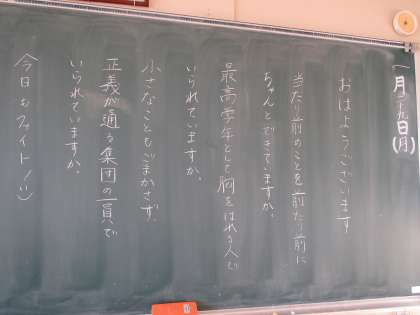 一月二十九日(月)
おはようございます
当たり前のことを前たり前に
ちゃんとできていますか。
最高学年として胸をはれる人で
いられていますか。
小さなこともごまかさず、
正義が通る集団の一員で
いられていますか。
今日もファイト!:)